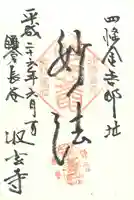 四條金吾邸址
妙法
平成二十六年六月一日
鎌倉長谷
収玄寺